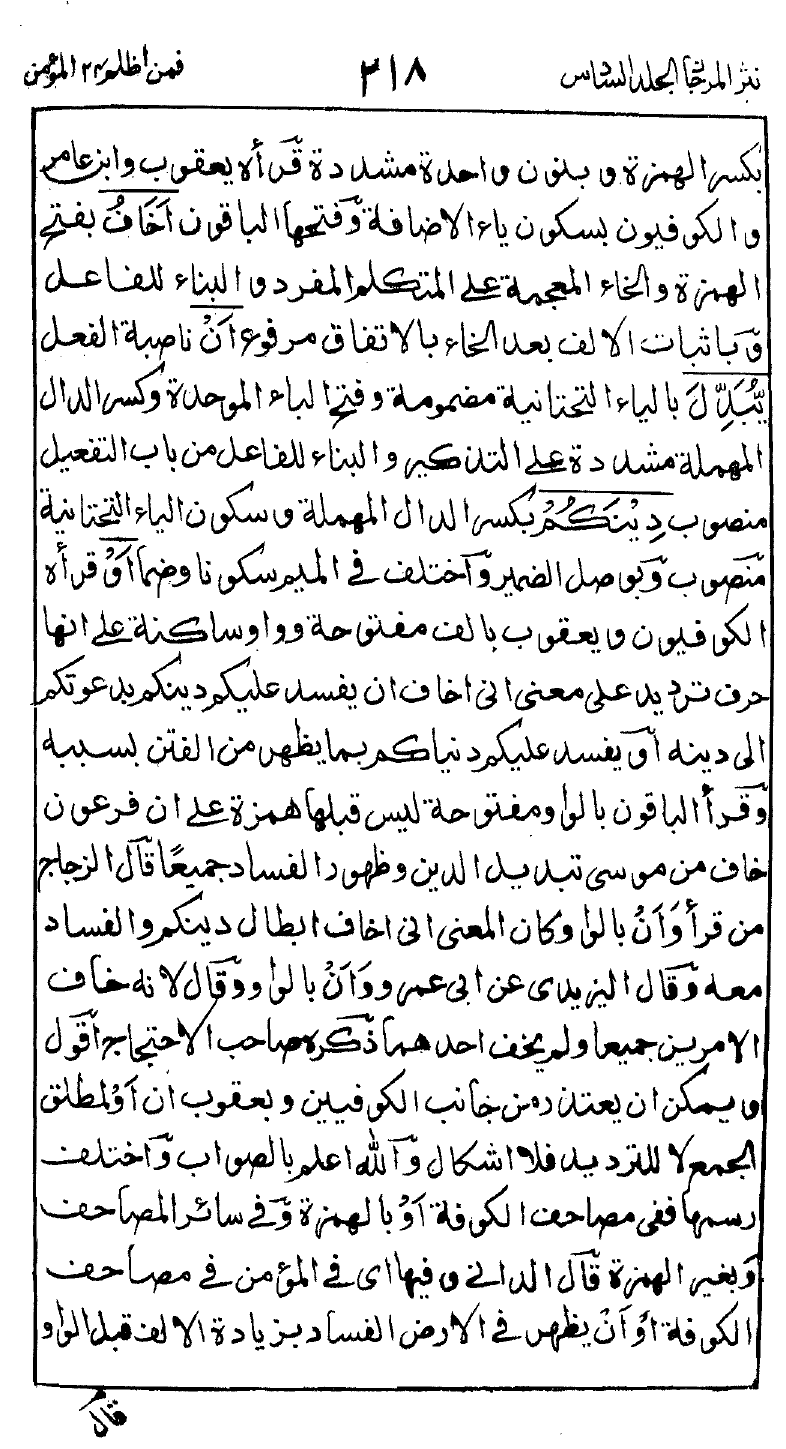 نثر المرجان الجلد السادس ٣١٨ فمن اظلم ٢٤ المؤمن
بكسر الهمزة و بنون واحدة مشددة قرأه يعقوب وابن عامر
و الكوفيون بسكون ياء الاضافة وفتحها الباقون اَخَافُ بفتح
الهمزة و الخاء المعجمة على المتكلم المفرد و البناء للفاعل
و باثبات الالف بعد الخاء بالاتفاق مرفوع اَنْ ناصبة الفعل
يُّبَدِّلَ بالياء التحتانية مضمومة وفتح الباء الموحدة وكسر الدال
المهملة مشددة على التذكير و البناء للفاعل من باب التفعيل
منصوب دِيْنَكُمْ بكسر الدال المهملة و سكون الياء التحتانية
منصوب وبوصل الضمير واختلف في الميم سكونا وضما اَوْ قرأه
الكوفيون و يعقوب بالف مفتوحة وواو ساكنة على انها
حرف ترديد على معنى اني اخاف ان يفسد عليكم دينكم بدعوتكم
الى دينه او يفسد عليكم دنياكم بما يظهر من الفتن بسببه
وقرأ الباقون بالواو مفتوحة ليس قبلها همزة على ان فرعون
خاف من موسى تبديل الدين وظهور الفساد جميعًا قال الزجاج
من قرأ وَاَنْ بالواو كان المعنى اني اخاف ابطال دينكم والفساد
معه وقال اليزيدى عن ابى عمرو وَاَنْ بالواو وقال لانه خاف
الامرين جميعا ولم يخف احدهما ذكره صاحب الاحتجاج اقول
و يمكن ان يعتذر من جانب الكوفيين و يعقوب ان اَوْ لمطلق
الجمع لا للترديد فلا اشكال والله اعلم بالصواب واختلف
رسمها ففي مصاحف الكوفة اَوْ بالهمزة وفي سائر المصاحف
وبغير الهمزة قال الداني و فيها اى في المؤمن في مصاحف
الكوفة اَوْ اَنْ يظهر في الارض الفساد بزيادة الالف قبل الواو
قال